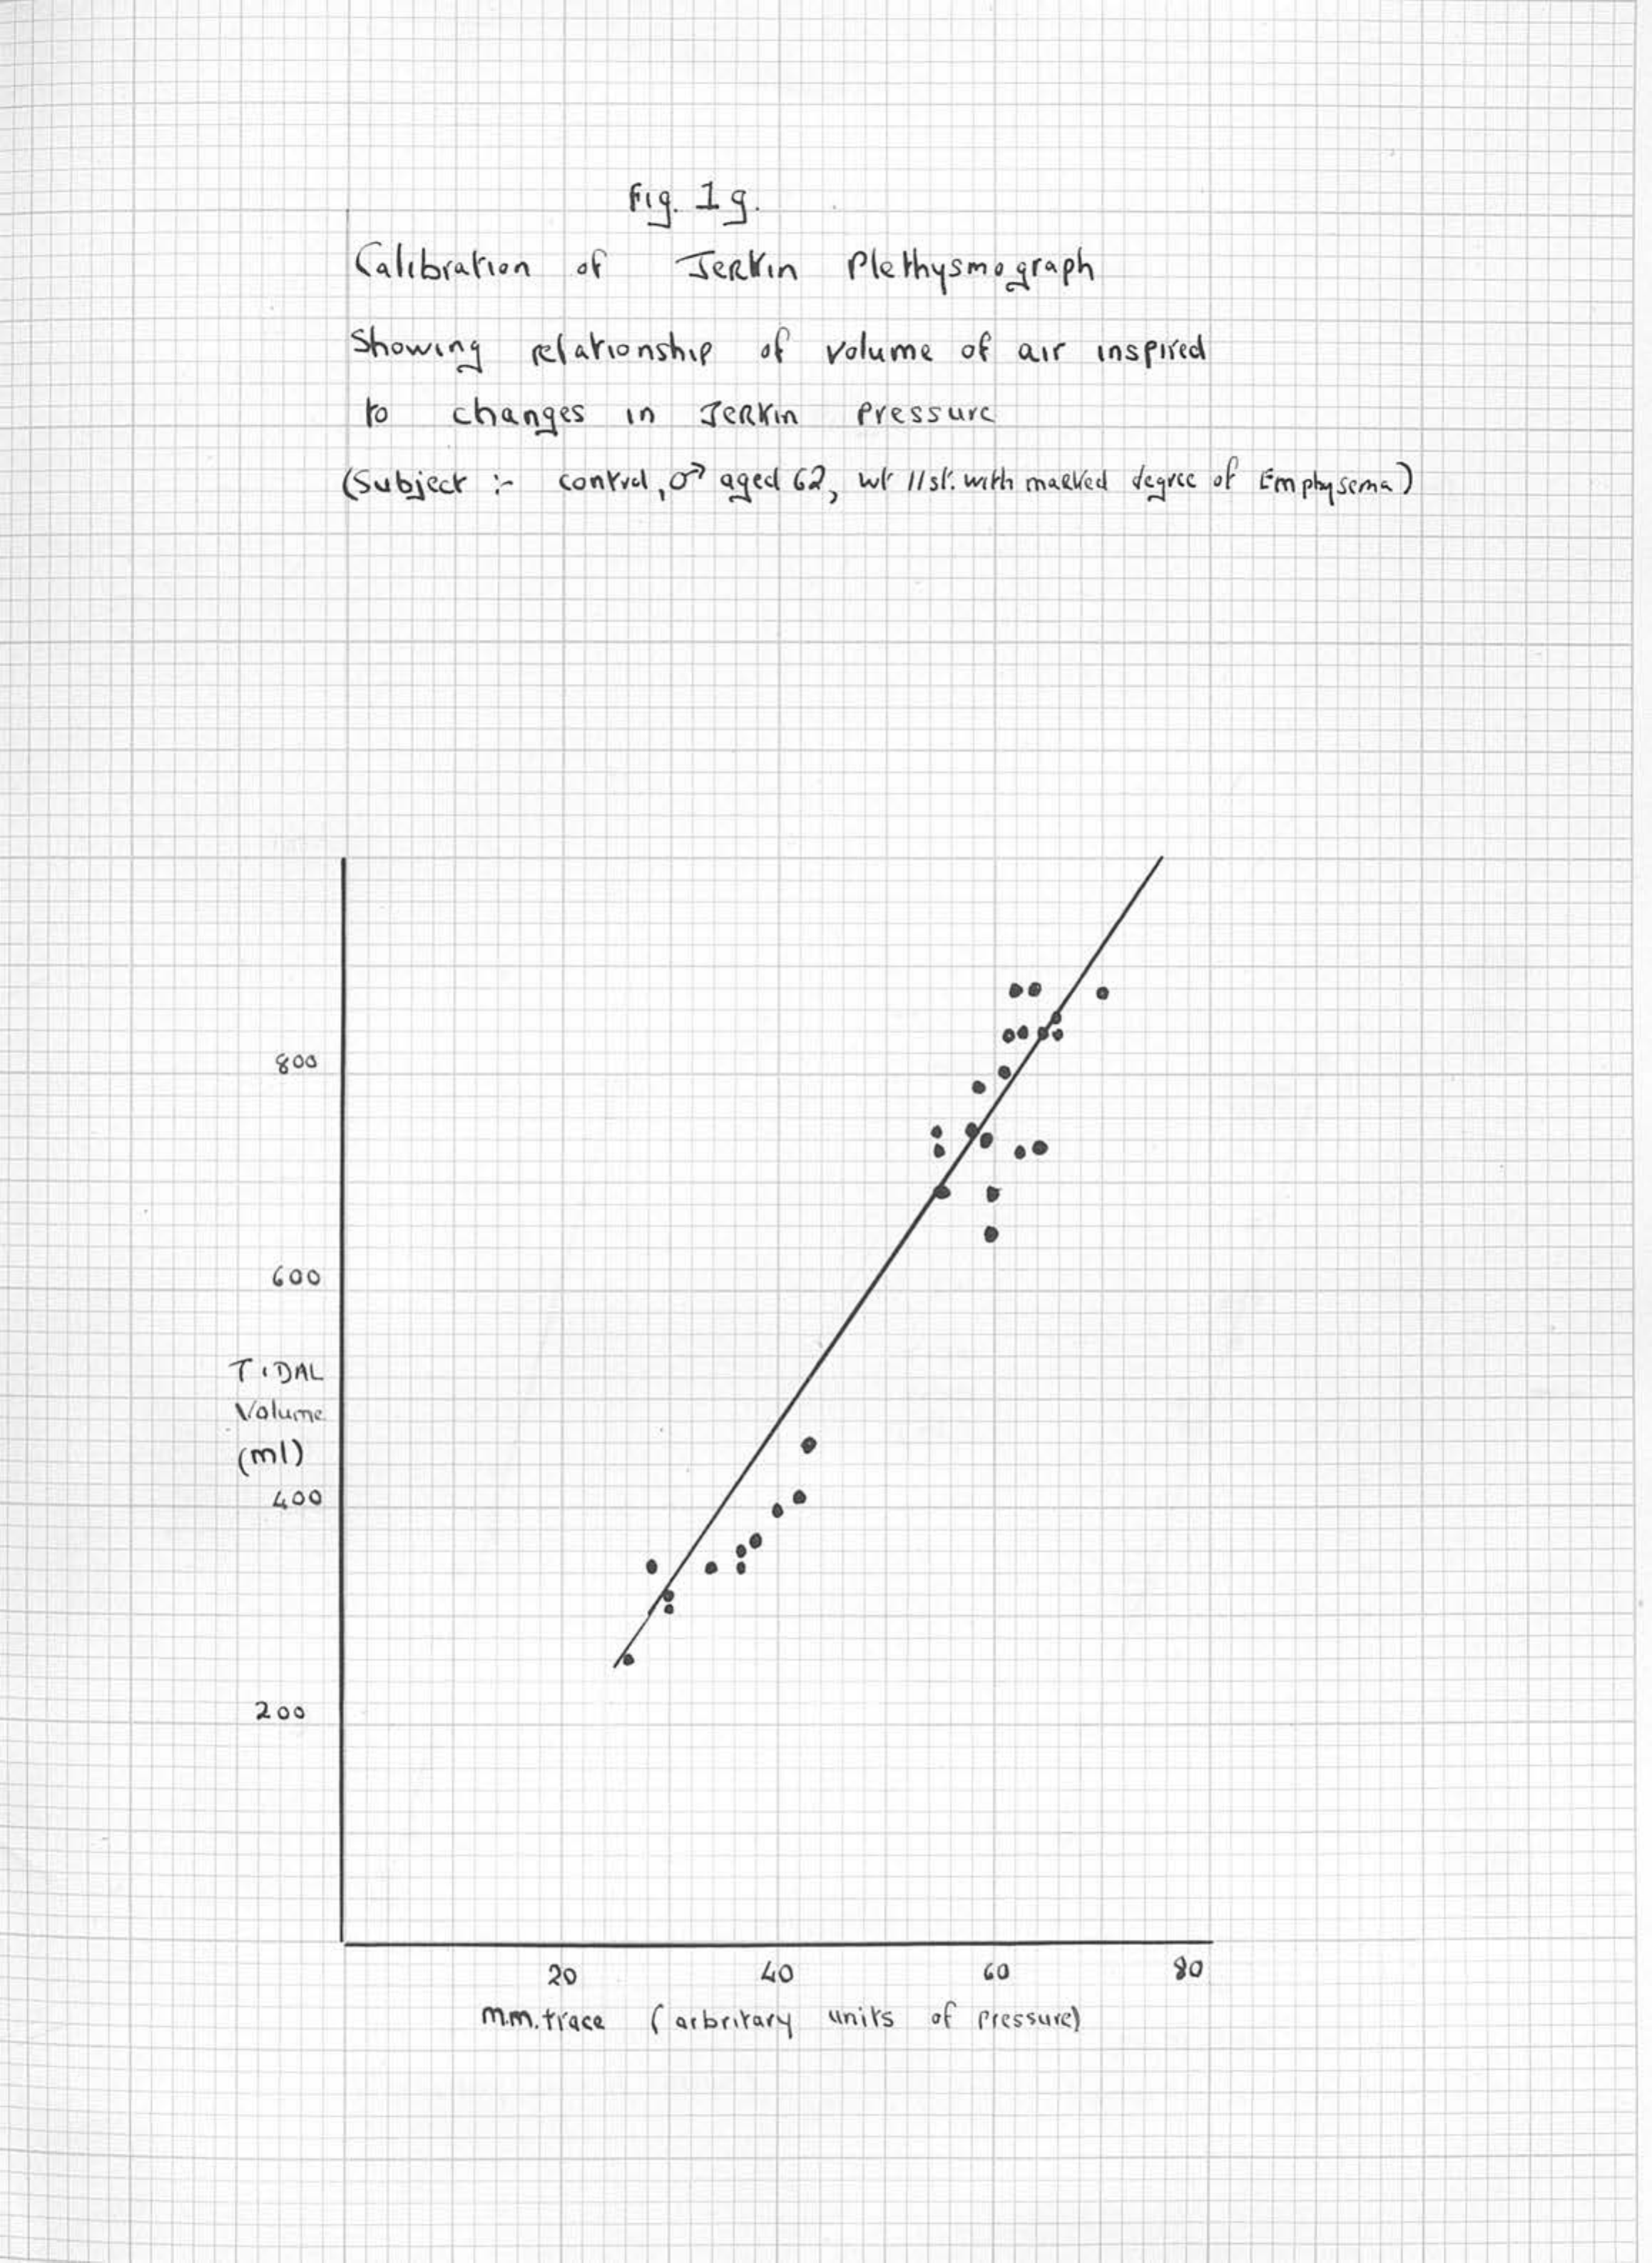 Fig. 1g.
Calibration of Jerkin Plethysmograph
Showing relationship of volume of air inspired
to changes in Jerkin Pressure
(Subject :- control, ♂ aged 62, wt 11st. with marked degree of Emphysema)
800
600
TIDAL
Volume
(ml)
400
200
20 40 60 80
m.m. trace (arbritary units of pressure)